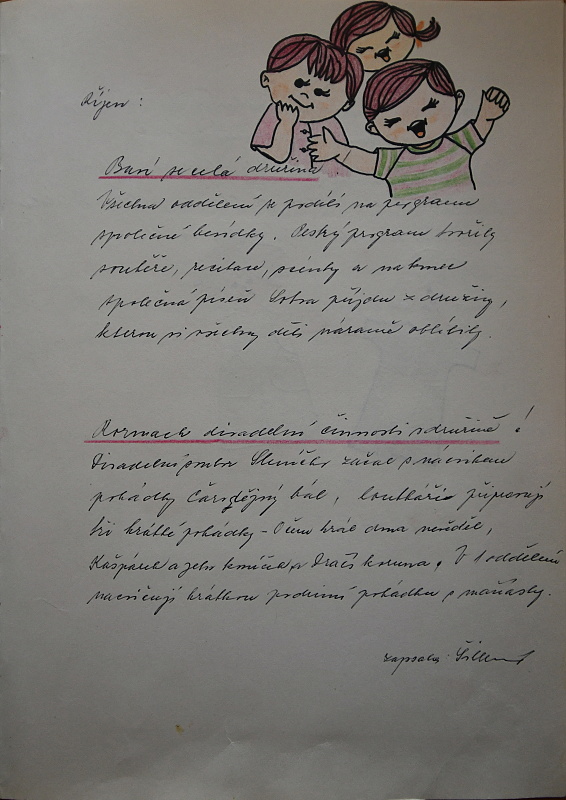 Říjen :
Baví se celá družina
Všechna oddělení se podílí na programu
společné besídky. Pestrý program tvořily
soutěže, recitace, scénky a nakonec
společná píseň Sotva přijdu z družiny,
kterou si všechny děti náramně oblíbily.
Rozmach divadelní činnosti v družině !
Divadelní soubor začal s nácvikem
pohádky Čarodějný bál, loutkáři připravují
tři krátké pohádky - O čem král doma nevěděl,
Kašpárek a jeho koníček a Dračí koruna. V 1 oddělení
nacvičují krátkou podzimní pohádku s maňásky.
zapsala